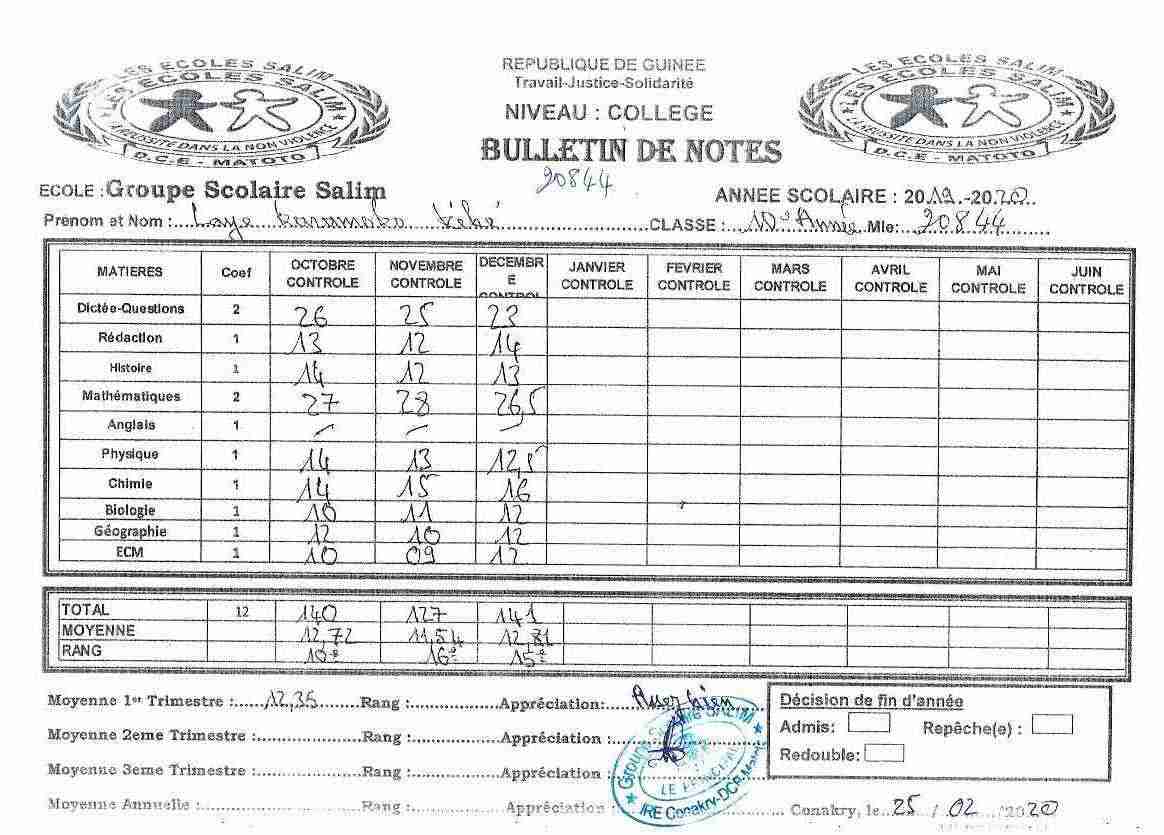 LES ECOLES SALIM
LES ECOLES SALIM
LA REUSSITE DANS LA NON VIOLENCE
D.C.E - MATOTO
REPUBLIQUE DE GUINEE
Travail-Justice-Solidarité
NIVEAU : COLLEGE
BULLETIN DE NOTES
20844
LES ECOLES SALIM
LES ECOLES SALIM
LA REUSSITE DANS LA NON VIOLENCE
D.C.E - MATOTO
ECOLE : Groupe Scolaire Salim ANNEE SCOLAIRE : 2019.-2020..
Prenom at Nom :....Laye ............CLASSE :...10e Année..Mle:..20844..........
MATIERES Coef OCTOBRE CONTROLE NOVEMBRE CONTROLE DECEMBRE CONTROL JANVIER CONTROLE FEVRIER CONTROLE MARS CONTROLE AVRIL CONTROLE MAI CONTROLE JUIN CONTROLE
Dictée-Questions 2 26 25 23
Rédaction 1 13 12 14
Histoire 1 14 12 13
Mathématiques 2 27 28 26,5
Anglais 1 - - -
Physique 1 14 13 12,5
Chimie 1 14 15 16
Biologie 1 10 11 12
Géographie 1 12 10 12
ECM 1 10 09 12
TOTAL 12 140 127 141
MOYENNE 12,72 11,54 12,81
RANG 10e 16e 15e
Moyenne 1er Trimestre :.....12,35.......Rang :..............Appréciation:....Assez bien....
Moyenne 2eme Trimestre :...............Rang :..............Appréciation :..............
Moyenne 3eme Trimestre :...............Rang :..............Appréciation :..............
Moyenne Annuelle :.......................Rang :..............Appréciation :..............
Décision de fin d'année
Admis: Repêche(e) :
Redouble:
Groupe Scolaire SALIM
LE PRINCIPAL
IRE Conakry-DCE Matoto
Conakry, le..25../..02../2020